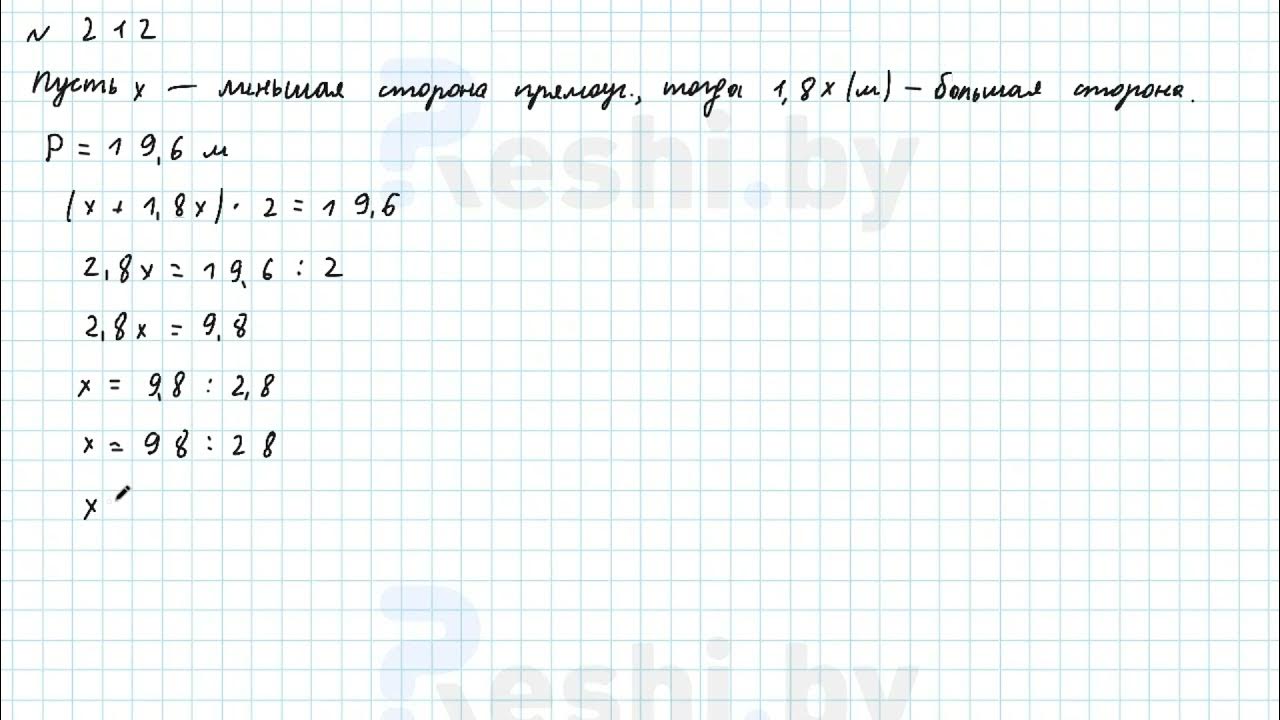 N 212
Пусть x — меньшая сторона прямоуг., тогда 1,8x (м) – большая сторона.
P = 19,6 м
(x + 1,8x) · 2 = 19,6
2,8x = 19,6 : 2
2,8x = 9,8
x = 9,8 : 2,8
x = 98 : 28
x
Reshi.by
Reshi.by